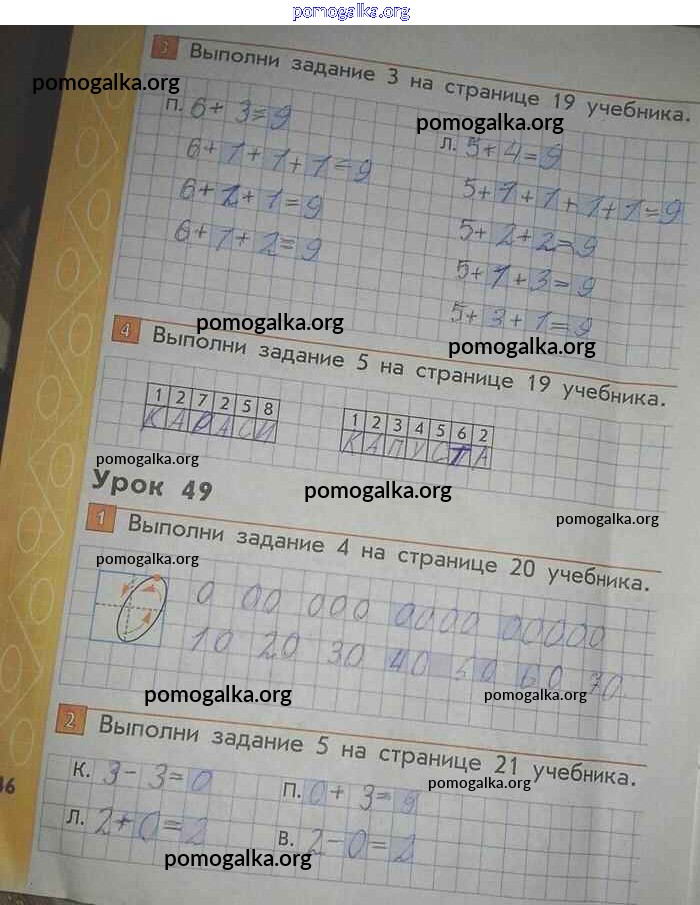 pomogalka.org
3 Выполни задание 3 на странице 19 учебника.
pomogalka.org
pomogalka.org
П. 6+3=9
Л. 5+4=9
6+1+1+1=9
5+1+1+1+1=9
6+2+1=9
5+2+2=9
6+1+2=9
5+1+3=9
5+3+1=9
pomogalka.org
pomogalka.org
4 Выполни задание 5 на странице 19 учебника.
1 2 7 2 5 8
К А Р А С И
1 2 3 4 5 6 2
К А П У С Т А
pomogalka.org
Урок 49
pomogalka.org
pomogalka.org
1 Выполни задание 4 на странице 20 учебника.
pomogalka.org
0 00 000 0000 00000
10 20 30 40 50 60 70
pomogalka.org
pomogalka.org
2 Выполни задание 5 на странице 21 учебника.
К. 3-3=0
П. 0+3=
pomogalka.org
Л. 2+0=2
В. 2-0=2
pomogalka.org